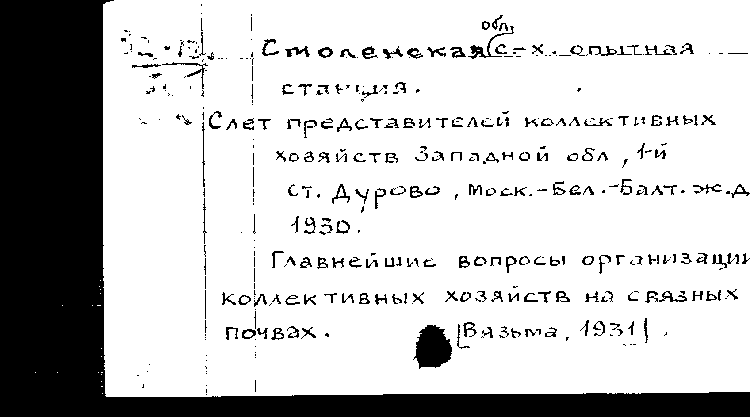 обл.
Смоленская с-х. опытная
станция.
Слет представителей коллективных
хозяйств Западной обл, 1-й
ст. Дурово, Моск.-Бел.-Балт. ж.д
1930.
Главнейшие вопросы организации
коллективных хозяйств на связных
почвах. [Вязьма, 1931].